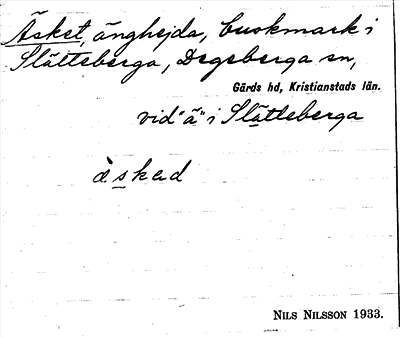 Äsket, änghejda, buskmark i
Slätteberga, Degeberga sn,
Gärds hd, Kristianstads län.
vid "ä" i Slätteberga
äskad
NILS NILSSON 1933.